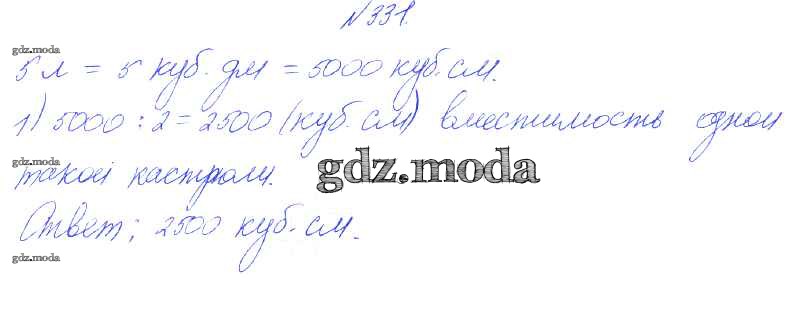 №331.
gdz.moda
5 л = 5 куб. дм = 5000 куб. см.
1) 5000 : 2 = 2500 (куб. см) вместимость одной
gdz.moda
такой кастрюли.
gdz.moda
Ответ; 2500 куб. см.
gdz.moda